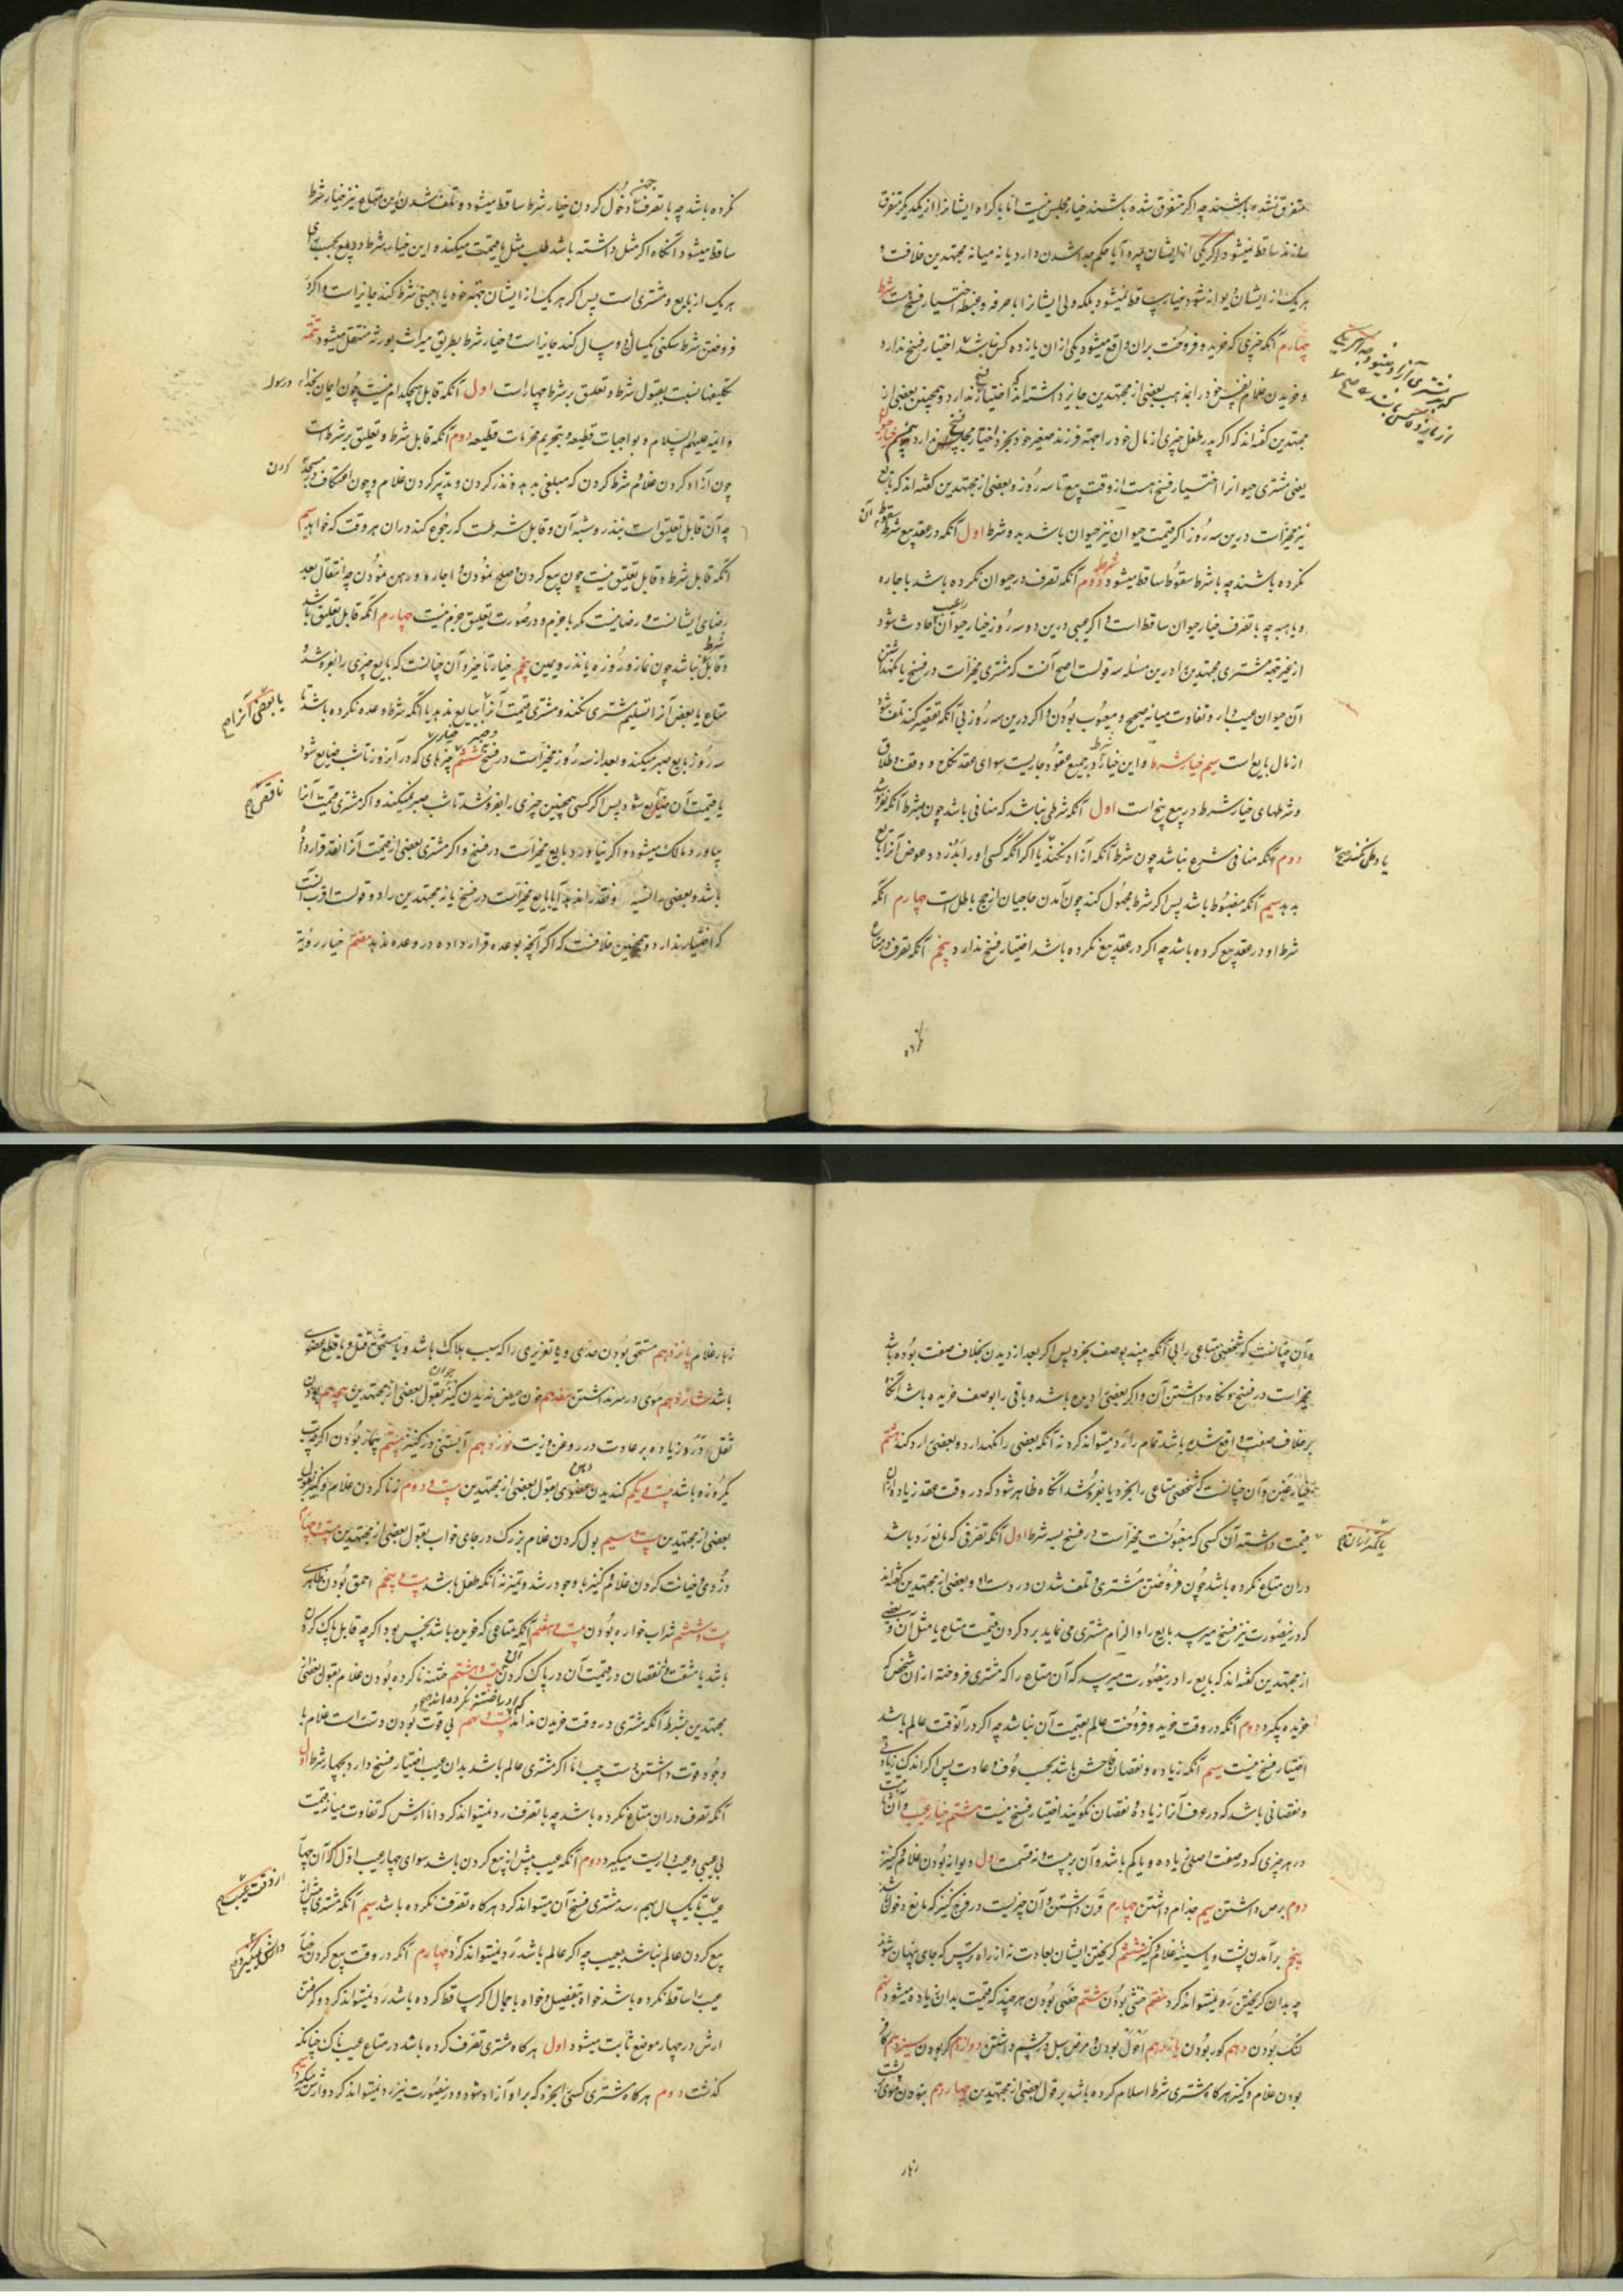 متفرق نشده باشند چه اگر متفرق شده باشند خیار مجلس نیست اما با کراه ایشانرا از یکدیگر متفرق
سازند ساقط نمیشود و اگر یکی از ایشان بمیرد آیا حکم جدا شدن دارد یا نه میانه مجتهدین خلافست و
هر یک از ایشان دیوانه شود خیارش ساقط نمیشود بلکه ولی ایشانرا با صرفه و غبطه اختیار فسخ هست شرط
چهارم آنکه چیزی که خرید و فروخت بران واقع میشود یکی ازان یازده کس نباشد اختیار فسخ ندارد
و خریدن غلام نفس خود را نزد بعضی از مجتهدین جایز داشته‌اند که اختیار فسخ ندارد و همچنین بعضی از
مجتهدین گفته‌اند که اگر پدر طفل چیزی از مال خود را جهة فرزند صغیر خود بخرد اختیار مجلس فسخ ندارد
یعنی مشتری حیوانرا اختیار فسخ هست از وقت بیع تا سه روز و بعضی از مجتهدین گفته‌اند که بایع
نیز مخیر است درین سه روز اگر قیمت حیوان نیز حیوان باشد بدو شرط اول آنکه در عقد بیع شرط سقوط آن
نکرده باشند چه با شرط سقوط ساقط میشود شرط دوم آنکه تصرف در حیوان نکرده باشد باجاره
و یا هبه چه با تصرف خیار حیوان ساقط است و اگر عیبی درین دو سه روز خیار حیوان را عیب حادث شود
از غیر جهة مشتری مجتهدین را درین مسئله سه قولست اصح آنست که مشتری مخیر است در فسخ یا نگهداشتن
آن حیوان عیب‌دار و تفاوت میانه صحیح و معیوب بودن و اگر درین سه روز بی آنکه تقصیر کند تلف شود
از مال بایع است سیم خیار شرط و این خیار شرط در جمیع عقود جاریست سوای عقد نکاح و وقف و طلاق
و شرطهای خیار شرط در بیع پنج است اول آنکه شرطی نباشد که منافی باشد چون بشرط آنکه نفروشد
دوم آنکه منافی شرع نباشد چون شرط آنکه آزاد نکند یا اگر آنکه کسی او را بدزدد عوض آنرا بایع
بدهد سیم آنکه مضبوط باشد پس اگر شرط مجهول کند چون آمدن حاجیان از حج باطل است چهارم آنکه
شرط او در عقد بیع کرده باشد چه اگر در عقد بیع نکرده باشد اختیار فسخ ندارد پنجم آنکه تصرف در متاع
نکرده
یا وطی نکند صح
نکرده باشد چه با تصرف چون دخول کردن خیار شرط ساقط میشود و تلف شدن این متاع نیز خیار شرط
ساقط میشود آنگاه اگر مثل داشته باشد طلب مثل یا قیمت میکند و این خیار شرط در بیع بحسب رای
هر یک از بایع و مشتری است پس اگر هر یک از ایشان جهة خود یا اجنبی شرط کند جایز است و اگر در
فروختن شرط سکنی یکسال یا دو سال کند جایز است و خیار شرط بطریق میراث بورثه منتقل میشود تتمه
تکلیفها نسبت بقبول شرط و تعلیق بر شرط چهار است اول آنکه قابل هیچکدام نیست چون ایمان بخدا و رسول
و ائمه علیهم السلام و بواجبات قطیعه و بتحریم محرمات قطیعه دوم آنکه قابل شرط و تعلیق بر شرط است
چون آزاد کردن غلام بشرط کردن که مبلغی بدهد و نذر کردن و مدبر کردن غلام و چون اعتکاف در مسجد کردن
چه آن قابل تعلیق است بنذر و شبه آن و قابل شرطست که رجوع کند دران هر وقت که خواهد سیم
آنکه قابل شرط و قابل تعلیق نیست چون بیع کردن و صلح نمودن و اجاره و رهن نمودن چه انتقال بعد
رضای ایشانست و رضا نیست مگر با جزم و در صورت تعلیق جزم نیست چهارم آنکه قابل تعلیق باشد
و قابل شرط نباشد چون نماز و روزه با نذر و یمین پنجم خیار تاخیر و آن چنانست که بایع چیزی را بفروشد و
متاع یا بعض آنرا تسلیم مشتری نکند و مشتری قیمت آنرا ببایع ندهد با آنکه شرط وعده نکرده باشد تا
سه روز بایع صبر میکند و بعد از سه روز مخیر است در فسخ و صبر ششم خیار چیزهای که در آنروز تا شب ضایع شود
یا قیمت آن ضایع شود پس اگر کسی همچنین چیزی را بفروشد تا شب صبر میکند و اگر مشتری قیمت آنرا
بیاورد مالک میشود و اگر نیاورد بایع مخیر است در فسخ و اگر مشتری بعضی از قیمت آنرا نقد قرار داده
باشد و بعضی را نسیه و نقد را ندهد آیا بایع مخیر است در فسخ یا نه مجتهدین را دو قولست اقرب آنست
که اختیار ندارد و همچنین خلافست که اگر آنچه بوعده قرار داده در وعده ندهد هفتم خیار رؤیة
یا بعض آنرا صح
ناقص صح
و آن چنانست که شخصی متاعی را بی آنکه بیند بوصف بخرد پس اگر بعد از دیدن بخلاف صفت بوده باشد
مخیر است در فسخ و نگاه داشتن آن و اگر بعضی را دیده باشد و باقی را بوصف خریده باشد آنگاه
بر خلاف صفت واقع شده باشد تمام را رد میتواند کرد نه آنکه بعضی را نگهدارد و بعضی را رد کند هشتم
خیار غبن و آن چنانست که شخصی متاعی را بخرد یا بفروشد آنگاه ظاهر شود که در وقت عقد زیاده ازان
قیمت داشته آن کسی که مغبونست مخیر است در فسخ بسه شرط اول آنکه تصرفی که مانع رد باشد
دران متاع نکرده باشد چون فروختن مشتری و تلف شدن در دست او و بعضی از مجتهدین گفته‌اند
که درینصورت نیز فسخ میرسد بایع را و الزام مشتری می نماید برد کردن قیمت متاع یا مثل آن و بعضی
از مجتهدین گفته‌اند که بایع را درینصورت میرسد که آن متاع را که مشتری فروخته ازان شخص که
خریده بگیرد دوم آنکه در وقت خرید و فروخت عالم بقیمت آن نباشد چه اگر در آنوقت عالم باشد
اختیار فسخ نیست سیم آنکه زیاده و نقصان فاحش باشد بحسب عرف و عادت پس اگر اندک زیادتی
و نقصانی باشد که در عرف آنرا زیاده و نقصان نگویند اختیار فسخ نیست هشتم خیار عیب و آن ثابت است
در هر چیزی که در صفت اصلی زیاده و یا کم باشد و آن بر بیست و نه قسمت اول دیوانه بودن غلام و کنیز
دوم برص داشتن سیم جذام داشتن چهارم قرن داشتن و آن چیزیست در فرج کنیز که مانع دخول باشد
پنجم برآمدن پشت و یا سینه غلام و کنیز ششم گریختن ایشان بعادت نه از راه ترس که جای پنهان شوند
چه بدان گریختن رد نمیتواند کرد هفتم خنثی بودن هشتم خصی بودن هر چند که قیمت بدان زیاده میشود نهم
لنگ بودن دهم کور بودن یازدهم احول بودن و مرض سبل در چشم داشتن دوازدهم کر بودن سیزدهم کافر
بودن غلام و کنیز هرگاه مشتری شرط اسلام کرده باشد بر قول بعضی از مجتهدین چهاردهم نبودن موی پشت
زهار
زهار غلام پانزدهم مستحق بودن حدی و یا تعزیری را که سبب هلاک باشد و یا مستحق قتل و یا قطع عضوی
باشد شانزدهم موی در سر نداشتن هفدهم خون حیض ندیدن کنیز جوان بقول بعضی از مجتهدین هجدهم بودن
ثفل و درد زیاده بر عادت در روغن و زیت نوزدهم آبستنی در کنیز بیستم بیمار بودن اگرچه تب
یکروزه باشد بیست و یکم گندیدن دهن بقول بعضی از مجتهدین بیست و دوم زنا کردن غلام و کنیز بقول
بعضی از مجتهدین بیست و سیم بول کردن غلام بزرگ در جای خواب بقول بعضی از مجتهدین بیست و چهارم
دزدی و خیانت کردن غلام و کنیز با وجود رشد و تمیز نه آنکه طفل باشد بیست و پنجم احمق بودن ظاهری
بیست و ششم شراب خواره بودن بیست و هفتم آنکه متاعی که خریده باشد نجس بود اگرچه قابل پاک کردن
باشد با مشقت و نقصان در قیمت آن در پاک کردن آن بیست و هشتم ختنه نا کرده بودن غلام بقول بعضی از
مجتهدین بشرط آنکه مشتری در وقت خریدن نداند که او را ختنه نکرده‌اند بیست و نهم بی قوت بودن دست است غلام با
وجود قوت داشتن دست چپ اما اگر مشتری عالم باشد بدان عیب اختیار فسخ دارد بچهار شرط اول
آنکه تصرف دران متاع نکرده باشد چه با تصرف رد نمیتواند کرد اما ارش که تفاوت میانه قیمت
بی عیبی و عیب داریست میگیرد دوم آنکه عیب پیش از بیع کردن باشد سوای چهار عیب اول که آن چهار
عیب تا یکسال بهم رسد مشتری فسخ آن میتواند کرد هرگاه تصرف نکرده باشد سیم آنکه مشتری پیش از
بیع کردن عالم نباشد بعیب چه اگر عالم باشد رد نمیتواند کرد چهارم آنکه در وقت بیع کردن خیار
عیب را ساقط نکرده باشد خواه بتفصیل و خواه باجمال اگر ساقط کرده باشد رد نمیتواند کرد و گرفتن
ارش در چهار موضع ثابت میشود اول هرگاه مشتری تصرف کرده باشد در متاع عیب ناک چنانکه
گذشت دوم هرگاه مشتری کسی را بخرد که بر او آزاد شود و درینصورت نیز رد نمیتواند کرد و ارش میگیرد سیم
از وقت عیب صح